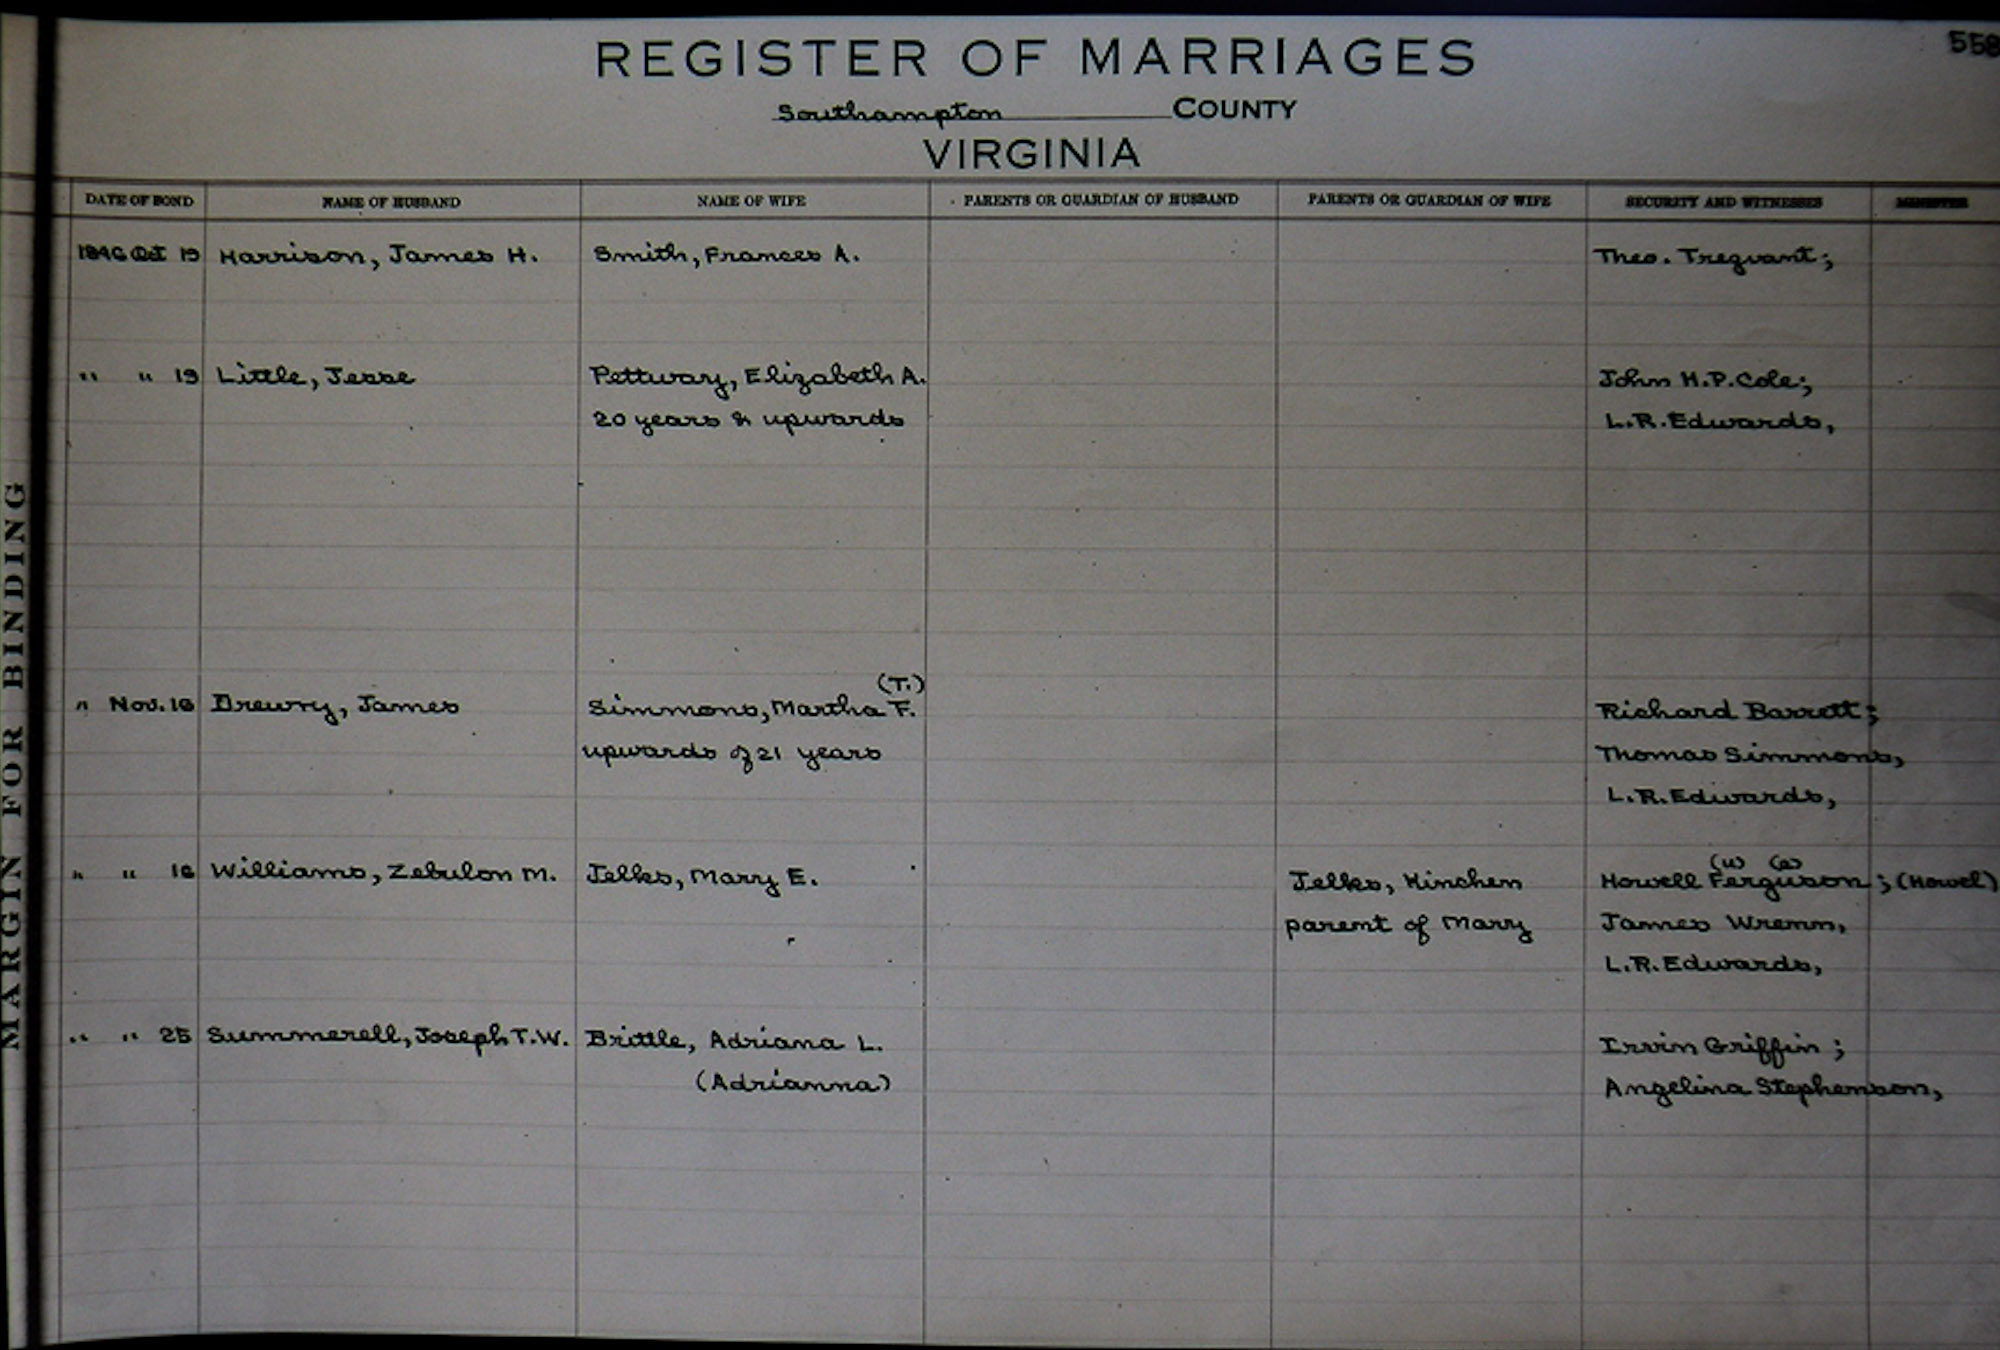 558
REGISTER OF MARRIAGES
Southampton COUNTY
VIRGINIA
DATE OF BOND NAME OF HUSBAND NAME OF WIFE PARENTS OR GUARDIAN OF HUSBAND PARENTS OR GUARDIAN OF WIFE SECURITY AND WITNESSES MINISTER
1846 Oct 19 Harrison, James H. Smith, Frances A. Theo. Trezvant;
" " 19 Little, Jesse Pettway, Elizabeth A. John H.P. Cole;
20 years & upwards L.R. Edwards,
(T.)
" Nov. 16 Drewry, James Simmons, Martha F. Richard Barrett;
upwards of 21 years Thomas Simmons,
L.R. Edwards,
(u) (e)
" " 16 Williams, Zebulon M. Jelks, Mary E. Jelks, Kinchen Howell Ferguson; (Howel)
parent of Mary James Wrenn,
L.R. Edwards,
" " 25 Summerell, Joseph T.W. Brittle, Adriana L. Irvin Griffin;
(Adrianna) Angelina Stephenson,
MARGIN FOR BINDING